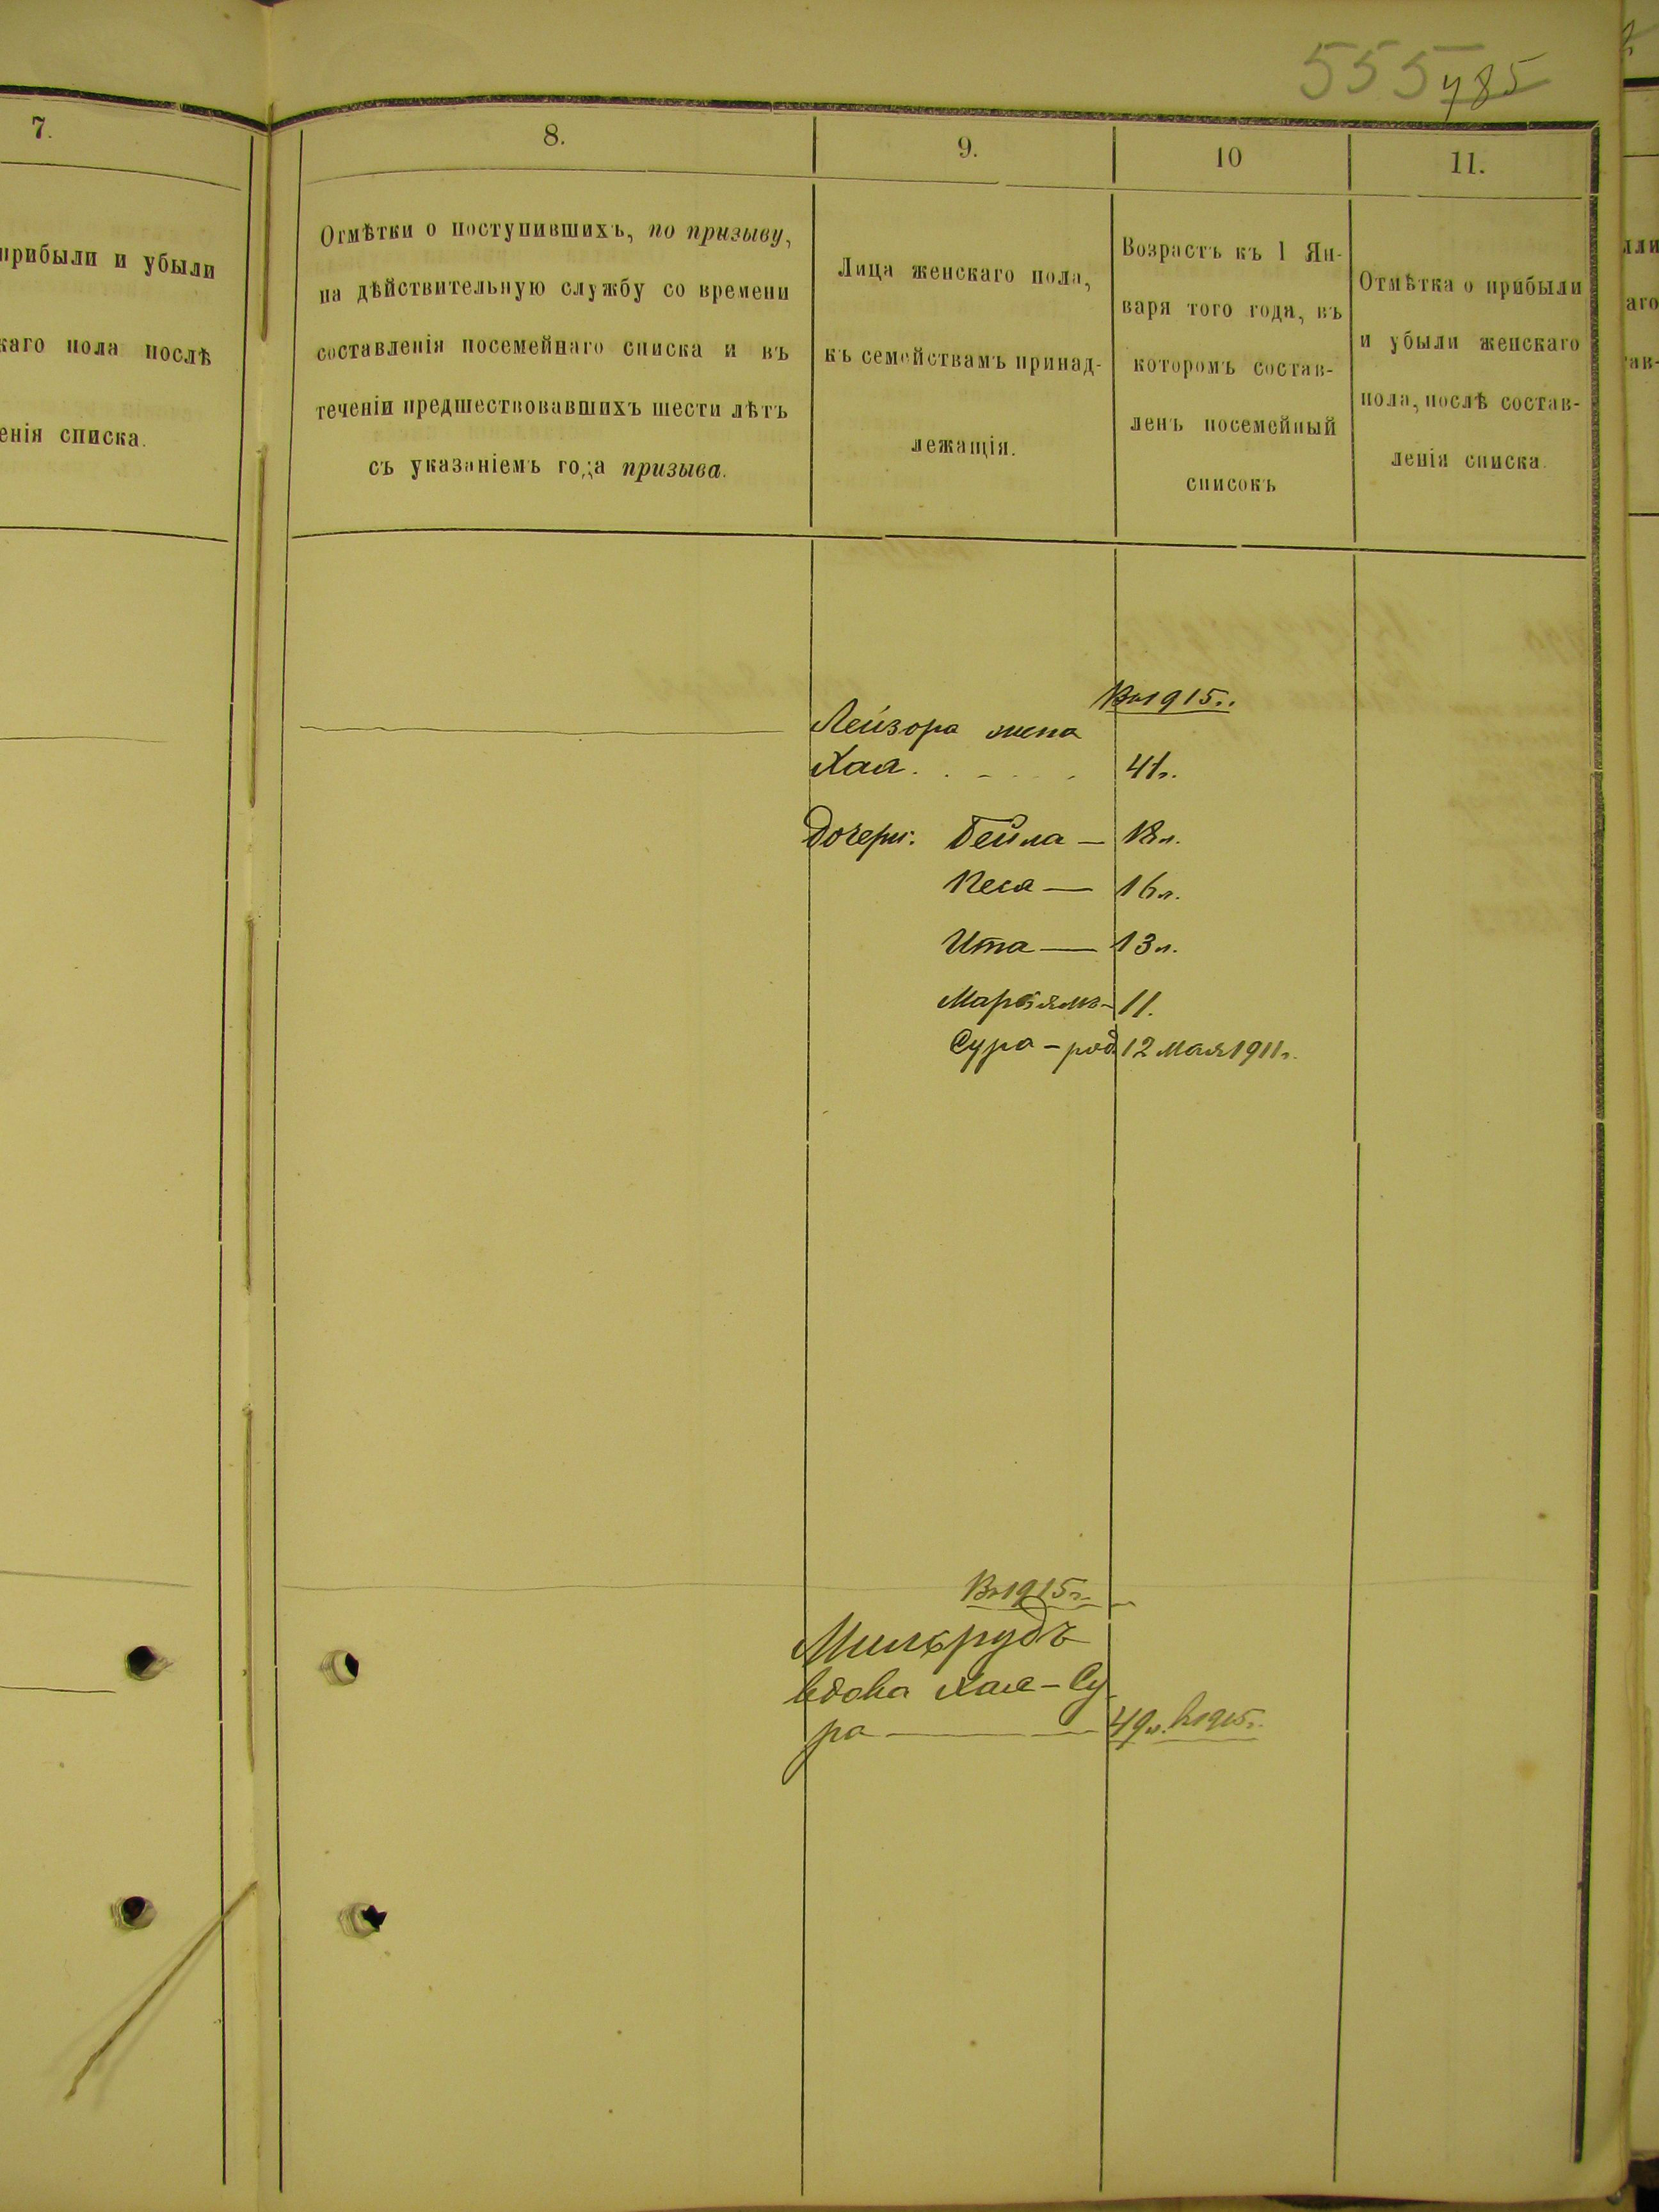 555 785
7.
8.
9.
10
11.
прибыли и убыли
каго пола послѣ
енія списка.
Отмѣтки о поступившихъ, по призыву,
на дѣйствительную службу со времени
составленія посемейнаго списка и въ
теченіи предшествовавшихъ шести лѣтъ
съ указаніемъ года призыва.
Лица женскаго пола,
къ семействамъ принад-
лежащія.
Возрастъ къ 1 Ян-
варя того года, въ
которомъ состав-
ленъ посемейный
списокъ
Отмѣтка о прибыли
и убыли женскаго
пола, послѣ состав-
ленія списка.
Въ 1915г.
Лейзора жена
Хая 41г.
Дочери: Бейла — 18л.
Песя — 16л.
Ита — 13л.
Марьямъ - 11.
Сура - род 12 Мая 1911г.
Въ 1915г.
Милърудъ
вдова Хая - Су
ра — 49л. въ 1915г.